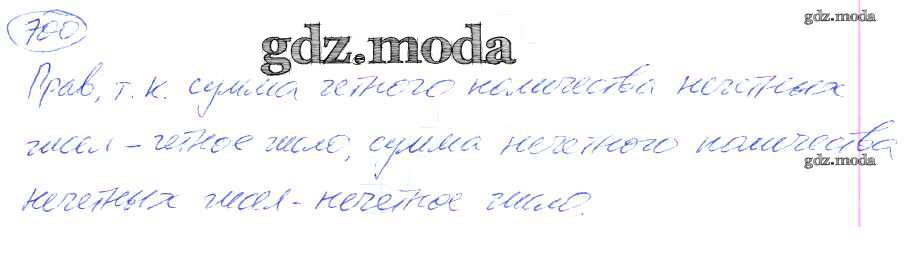 700
gdz.moda
gdz.moda
Прав, т. к. сумма четного количества нечетных
чисел – четное число, сумма нечетного количества
gdz.moda
нечетных чисел – нечетное число.